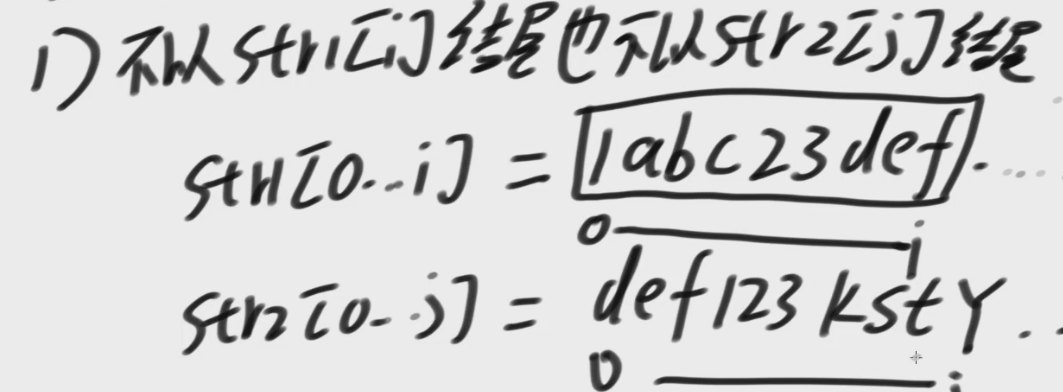 1) 不以str1[i]结尾也不以str2[j]结尾
str1[0..i] = 1abc23def.....
0 i
str2[0..j] = def123kstY..
0 j